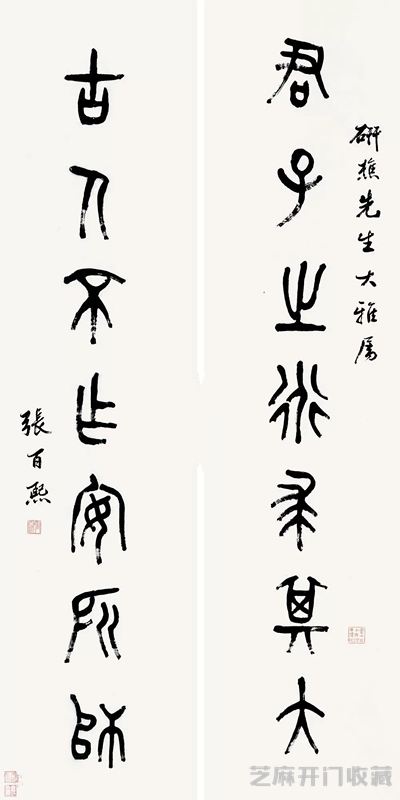 研樵先生大雅属
君子之道求其大
古人不作安所師
張百熙
芝麻开门收藏